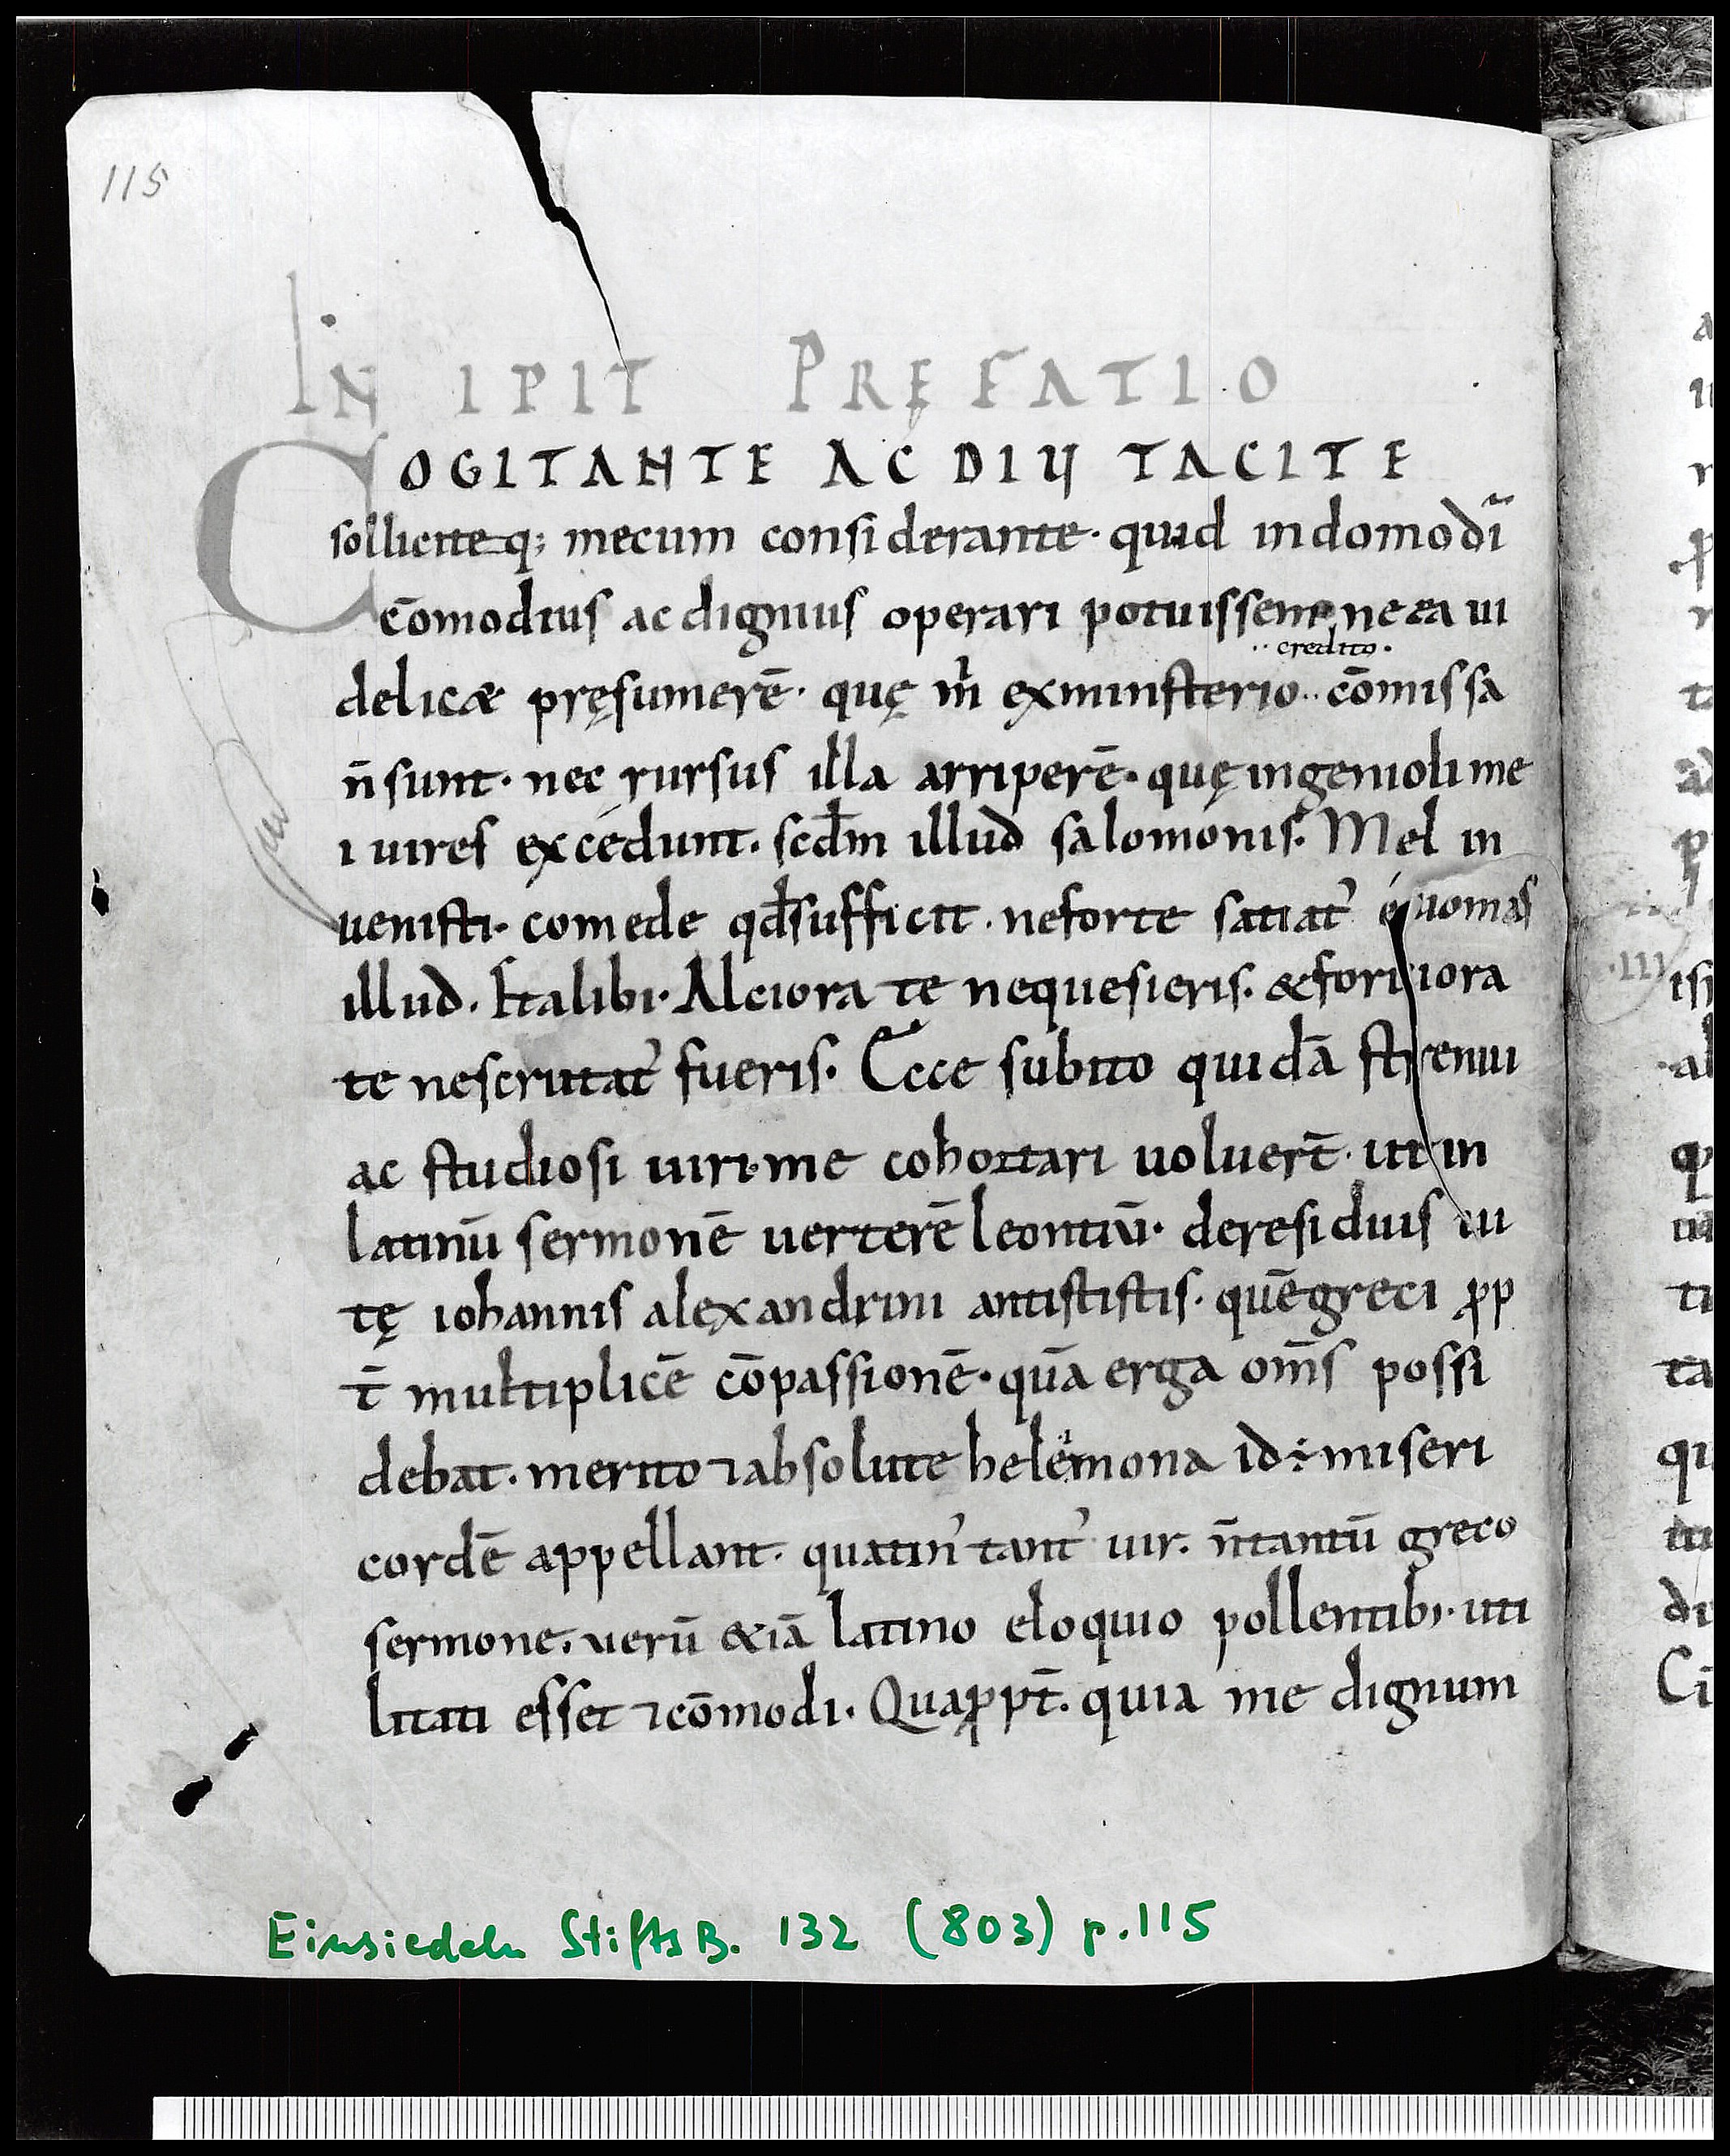 115
IN IPIT PRĘFATIO
COGITANTE AC DIU TACITE
solliciteq; mecum considerante· quid indomodi͂
cōmodius ac dignius operari potuissem· ne ea ui
··credito·
delicæ pręsumerē· quę m̄ exministerio·· cōmissa
n̄ sunt· nec rursus illa arriperē· quę ingenioli me
i uires excédunt· scdm̄ illud salomonis· Mel in
uenisti· comede qd̄ sufficit· neforte satiat' éuomas
illud· Et alibi· Alciora te nequesieris· & fortiora
te nescrutat' fueris· Ecce subito quidā strenui
ac studiosi uiri· me cohortari uoluert̄· ut in
latinū sermonē uerterē leontiū· deresiduis ui
tę iohannis alexandrini antistiftis· quē greci ꝓp
t̄ multiplicē cōpassionē· quā erga om̄s possi
debat· merito ⁊ absolute heleimona id ÷ miseri
cordē appellant· quatin' tant' uir· n̄ tantū greco
sermone· uerū &iā latino eloquio pollentib;· uti
litati esset ⁊ cōmodi· Quaꝓpt̄· quia me dignum
Einsiedeln StiftsB. 132 (803) p.115
·III·